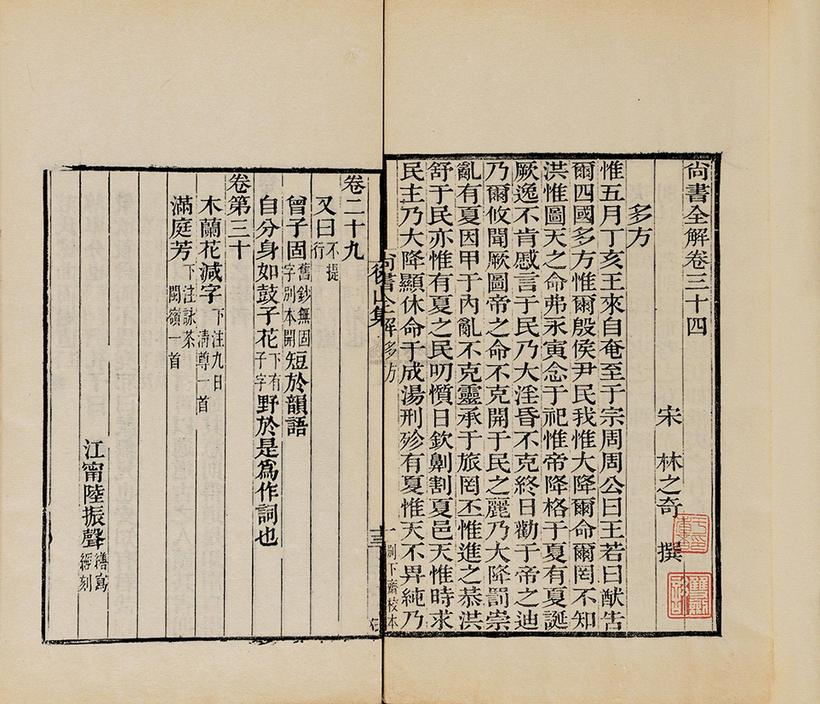 尙書全解卷三十四
宋 林之奇 撰
多方
惟五月丁亥王來自奄至于宗周周公曰王若曰猷告
爾四國多方惟爾殷侯尹民我惟大降爾命爾罔不知
洪惟圖天之命弗永寅念于祀惟帝降格于夏有夏誕
厥逸不肯慼言于民乃大淫昏不克終日勸于帝之迪
乃爾攸聞厥圖帝之命不克開于民之麗乃大降罰崇
亂有夏因甲于內亂不克靈承于旅罔丕惟進之恭洪
舒于民亦惟有夏之民叨懫日欽劓割夏邑天惟時求
民主乃大降顯休命于成湯刑殄有夏惟天不畀純乃
尚書全解 多方
後山集
十三
卷二十九
又曰不提行
曾子固舊鈔無固字別本開短於韻語
自分身如鼓子花下有子字野於是爲作詞也
卷第三十
木蘭花減字下注九日清尊一首
滿庭芳下注詠茶閩嶺一首
江甯陸振聲繕寫經刻